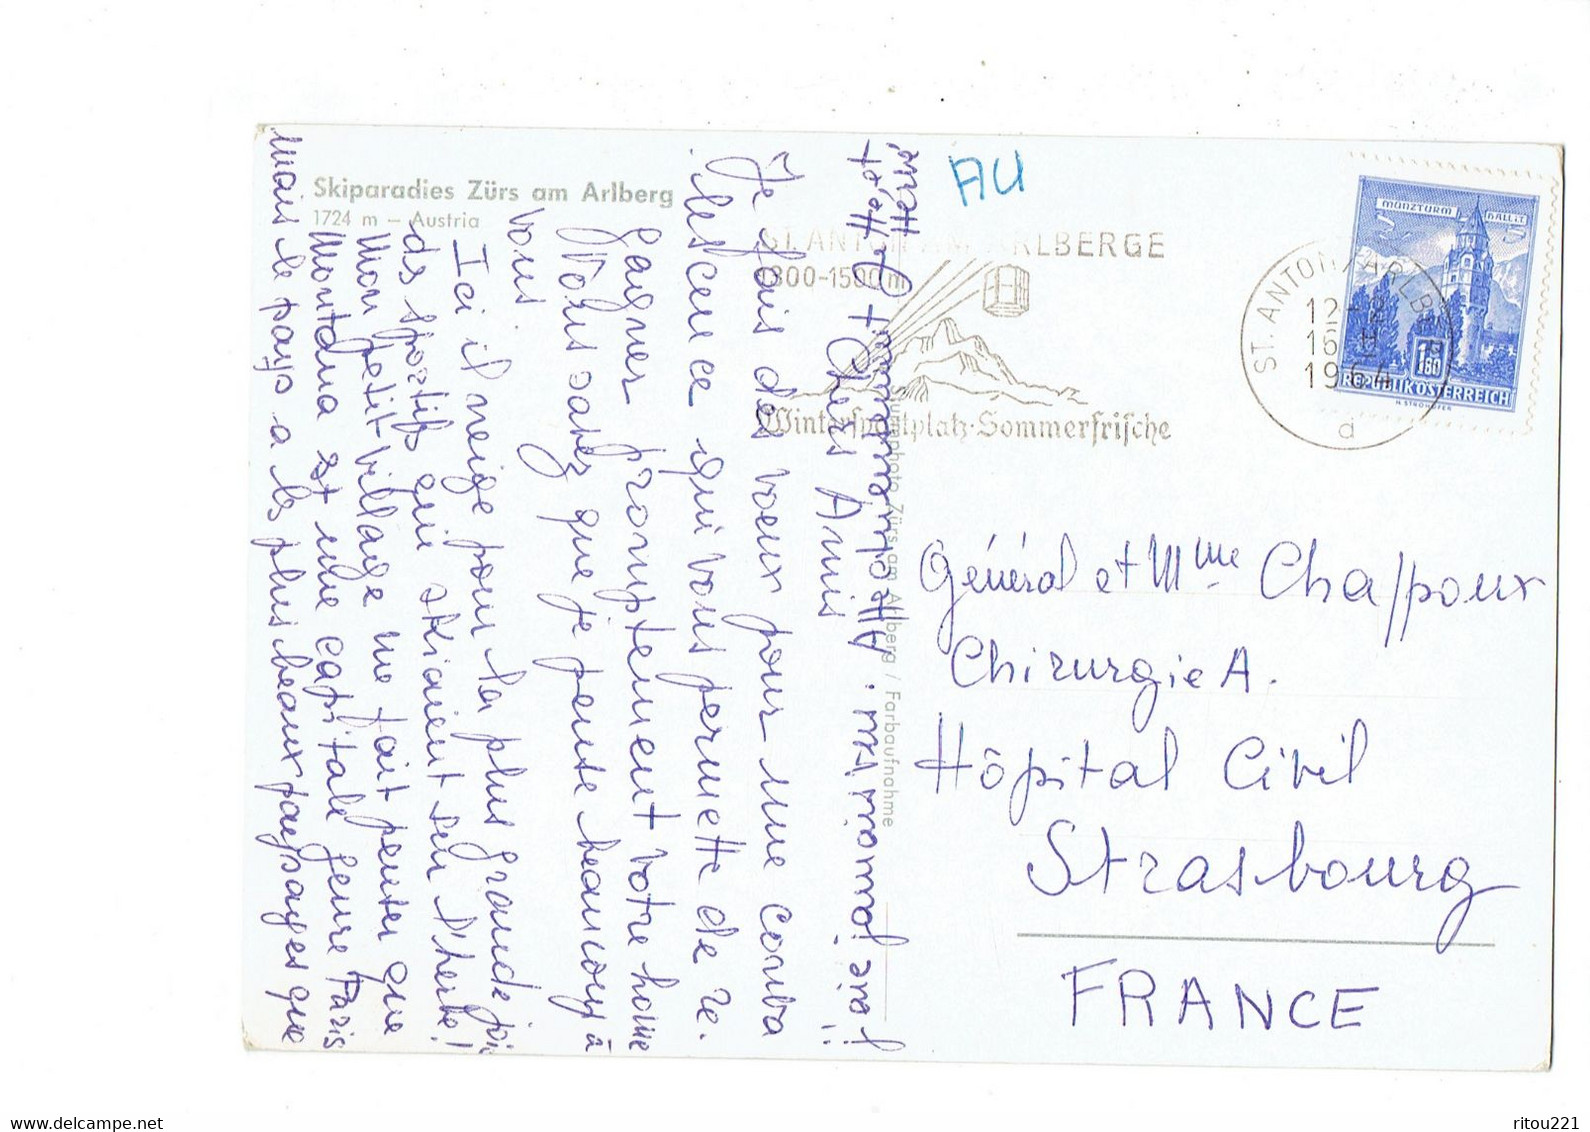 Skiparadies Zürs am Arlberg
1724 m – Austria
AU
ST. ANTON AM ARLBERGE
1300-1500 m
Wintersportplatz-Sommerfrische
ST. ANTON / ARLBERG
12
16. II
1964
d
MÜNZTURM HALL I.T.
1.80
REPUBLIK ÖSTERREICH
H. STROHOFER
Chers Amis
Je fais des voeux pour une conva
lescence qui vous permette de re.
gagner promptement votre home
Vous savez que je pense beaucoup à
vous
Ici il neige pour la plus grande joie
des sportifs qui skiaient sur l'herbe!
Mon petit village me fait penser que
Montana est une capitale genre Paris
mais le pays a les plus beaux paysages que
j'aie jamais vus. Affectueusement
Général et Mme Chappoux
Chirurgie A.
Hôpital Civil
Strasbourg
FRANCE
photo Zürs am Arlberg / Farbaufnahme
ritou221